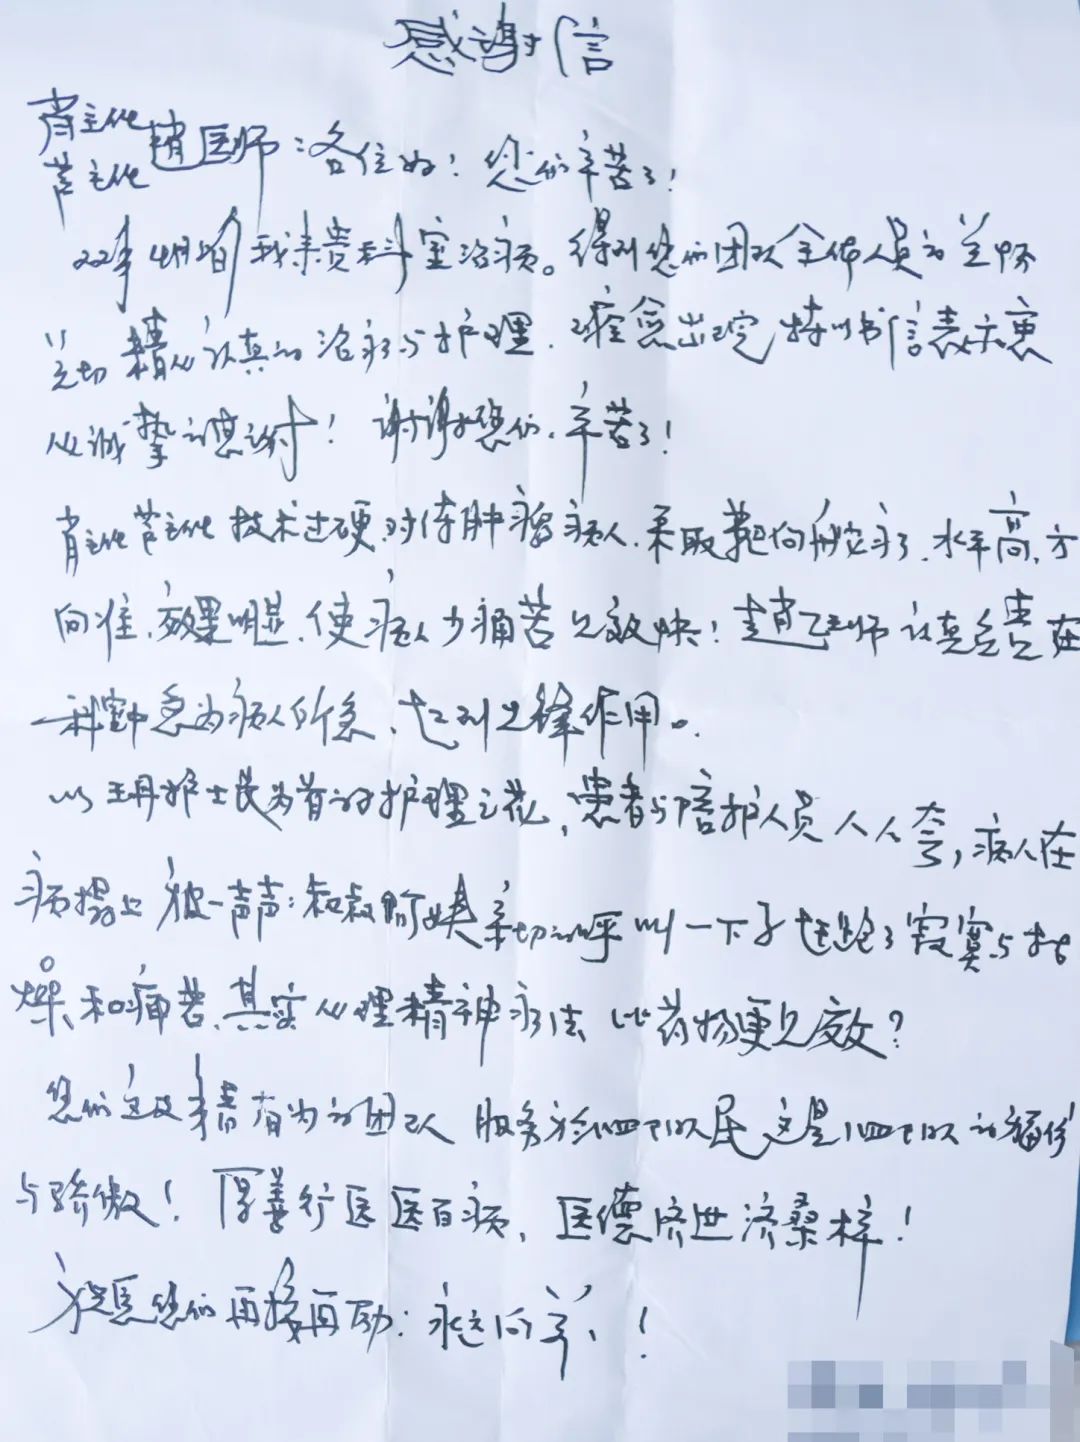 感谢信
肖主任
芦主任 赵医师：各位好！您们辛苦了！
22年4月日前我来贵科室治病。得到您们团队全体人员的关怀
关切精心认真的治疗与护理．痊愈出院特以书信表示衷
心诚挚的感谢！谢谢您们、辛苦了！
肖主任芦主任技术过硬，对待肿瘤病人．采取靶向放疗．水平高、方
向准、效果明显、使病人少痛苦见效快！赵医师认真负责在
科室中急为病人所急、起到先锋作用。
以王丹护士长为首的护理之花，患者与陪护人员人人夸，病人在
病榻上被一声声：叔叔阿姨亲切的呼叫一下子赶跑了寂寞与枯
燥和痛苦、其实心理精神疗法比药物更见效？
您们这支年青有为的团队 服务于 人民 这是 的福份
与骄傲！厚善行医医百病，医德济世济桑梓！
祝愿您们再接再励：永远向前！